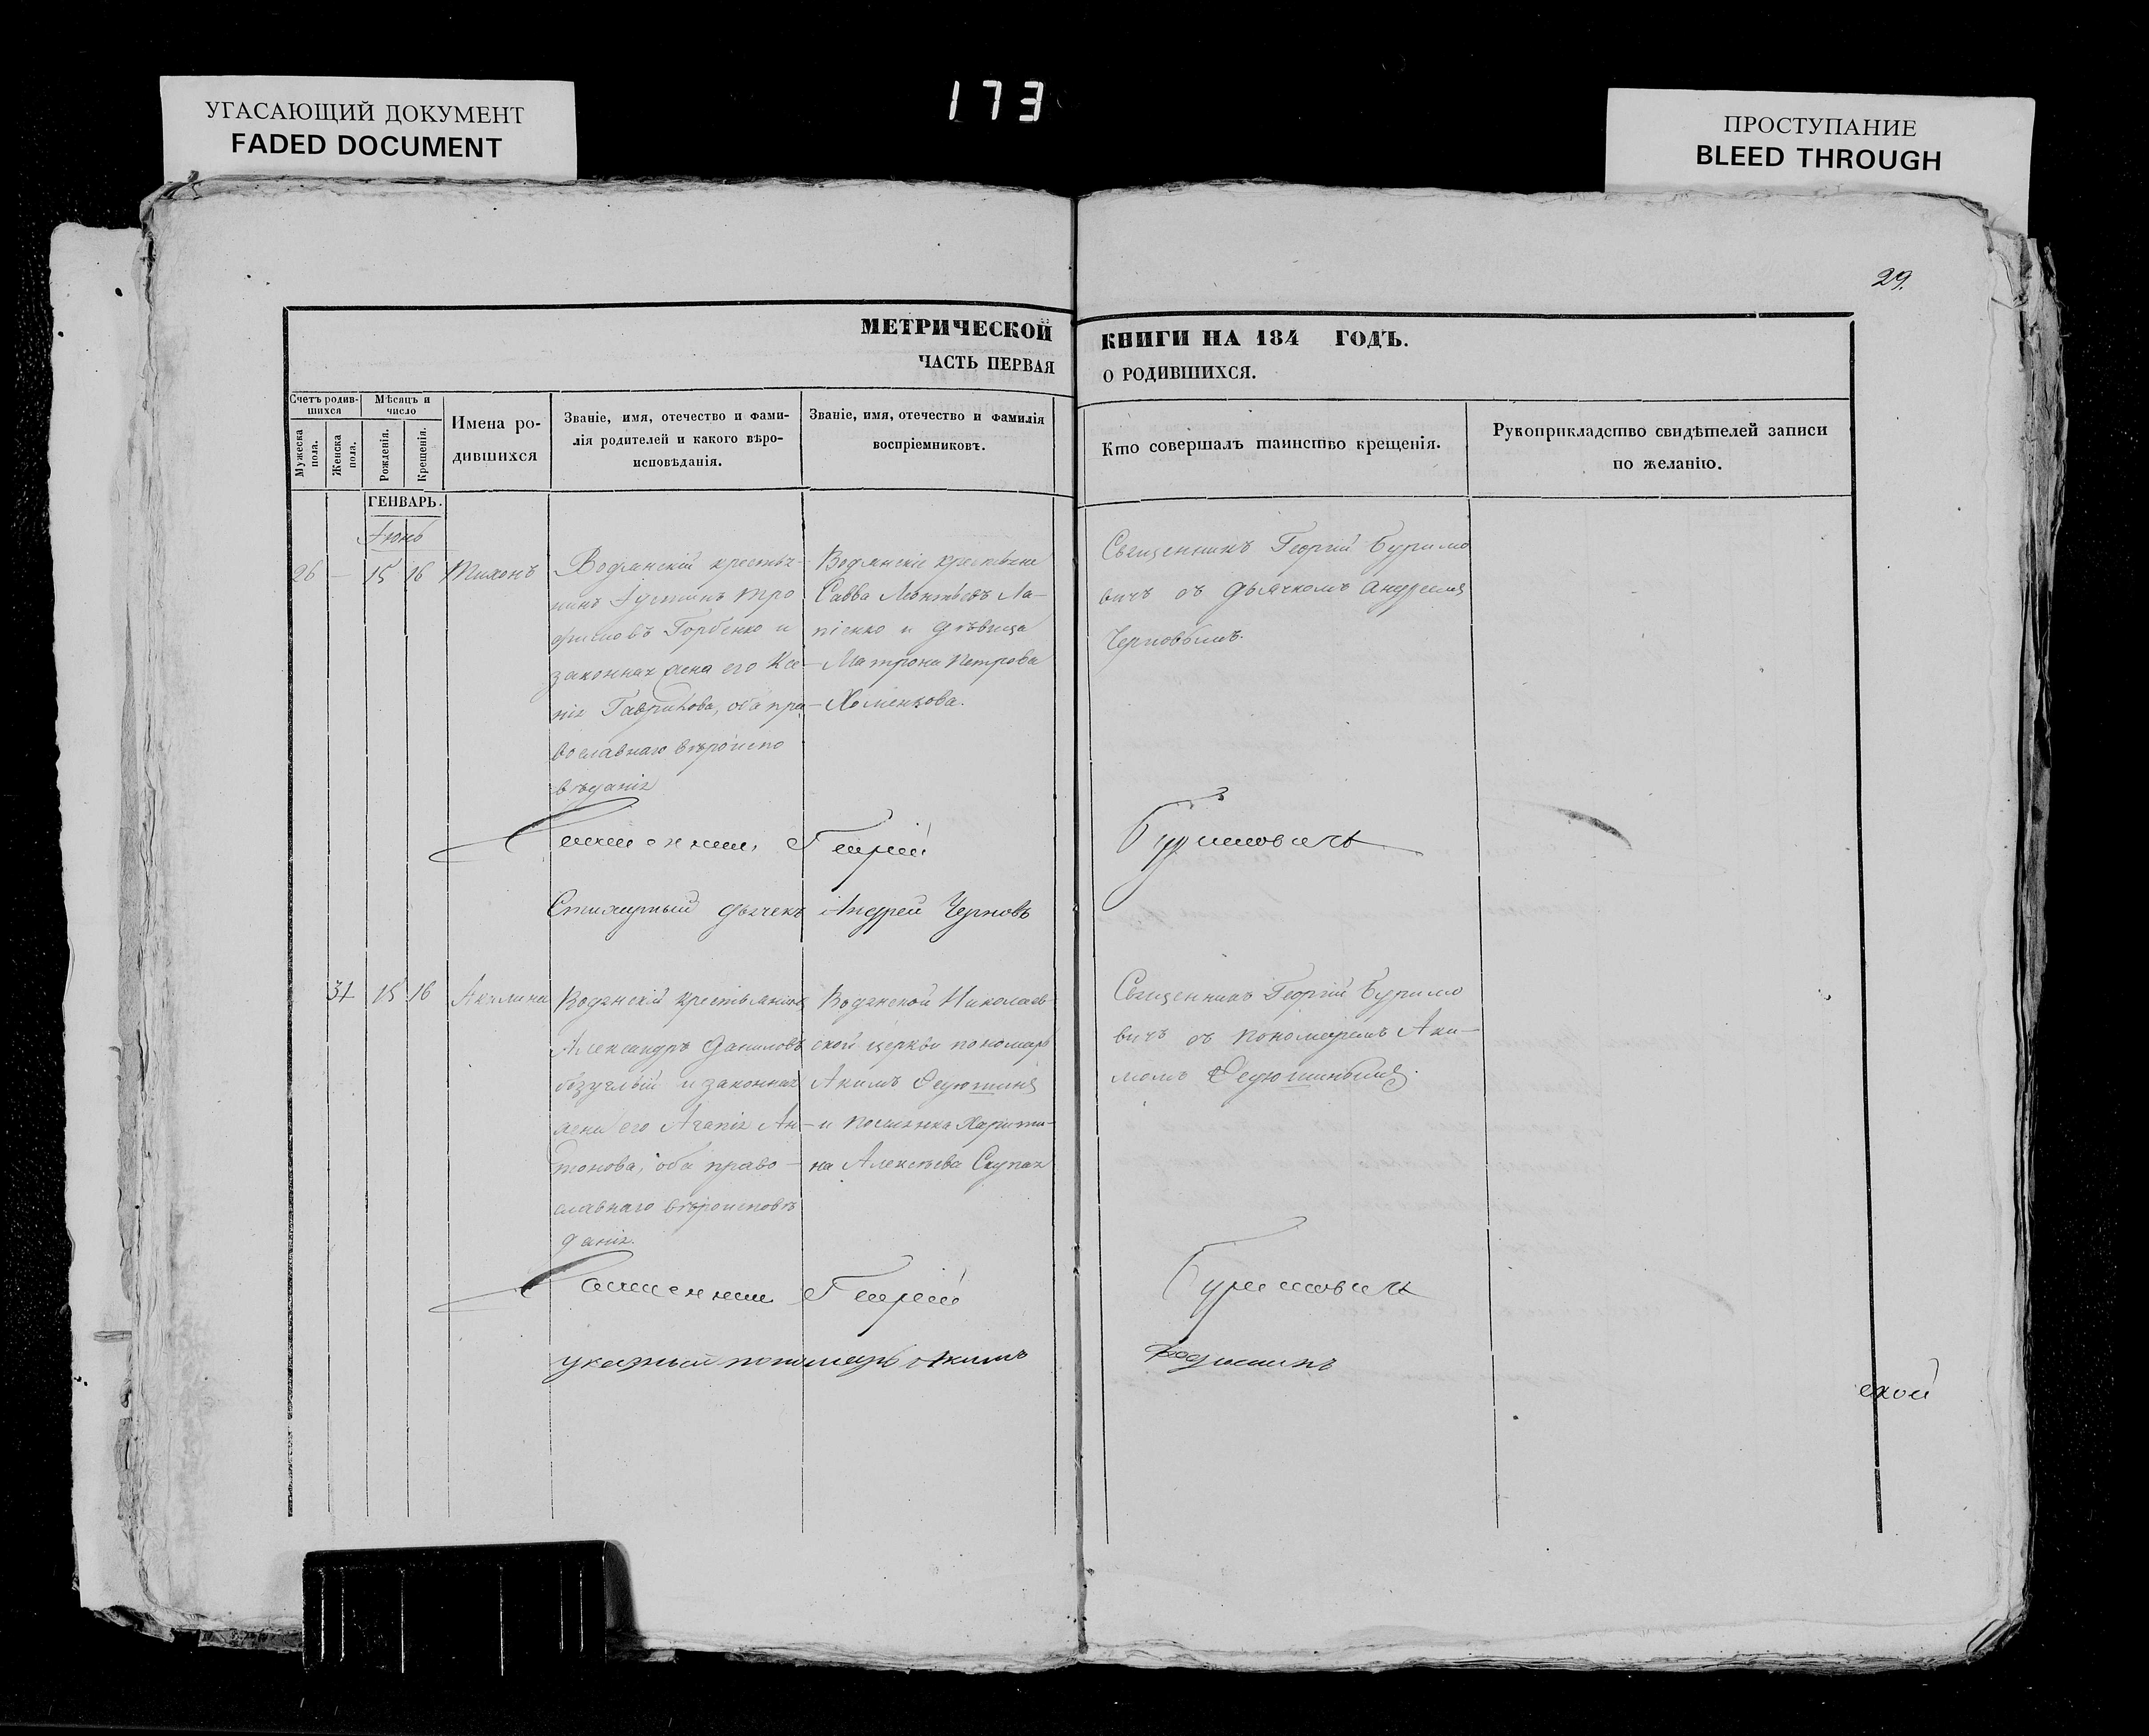 УГАСАЮЩИЙ ДОКУМЕНТ
FADED DOCUMENT
173
ПРОСТУПАНИЕ
BLEED THROUGH
29.
МЕТРИЧЕСКОЙ
ЧАСТЬ ПЕРВАЯ
КНИГИ НА 184 ГОДЪ.
О РОДИВШИХСЯ.
Счетъ родив-
шихся
Мѣсяцъ и
число
Мужеска
пола.
Женска
пола.
Рожденія.
Крещенія.
Имена ро-
дившихся
Званіе, имя, отечество и фами-
лія родителей и какого вѣро-
исповѣданія.
Званіе, имя, отечество и фамилія
воспріемниковъ.
Кто совершалъ таинство крещенія.
Рукоприкладство свидѣтелей записи
по желанію.
ГЕНВАРЬ.
Іюнь
26 — 15 16 Тихонъ
Водянскій крестья-
нинъ Іустинъ Тро
фимовъ Горбенко и
законная жена его Ксе-
нія Гаврилова, оба пра-
вославнаго вѣроиспо
вѣданія
Водянскіе крестьяне
Савва Леонтьевъ Ла-
пенко и дѣвица
Матрона Петрова
Хоменкова.
Священникъ Георгій Буримо
вичъ съ дьячкомъ Андреемъ
Черновымъ.
Священникъ Георгій Буримовичъ
Стихарный дьячекъ Андрей Черновъ
31 15 16 Акилина
Водянскій крестьянинъ
Александръ Даниловъ
Безуглый и законная
жена его Агапія Ан-
тонова, оба право-
славнаго вѣроисповѣ
данія.
Водянской Николаев-
ской церкви пономарь
Акимъ Федюшинъ
и поселянка Харити-
на Алексѣева Скупая
Священникъ Георгій Буримо
вичъ съ пономаремъ Аки-
момъ Федюшинымъ.
Священникъ Георгій Буримовичъ
указный пономарь Акимъ Федюшинъ
ской